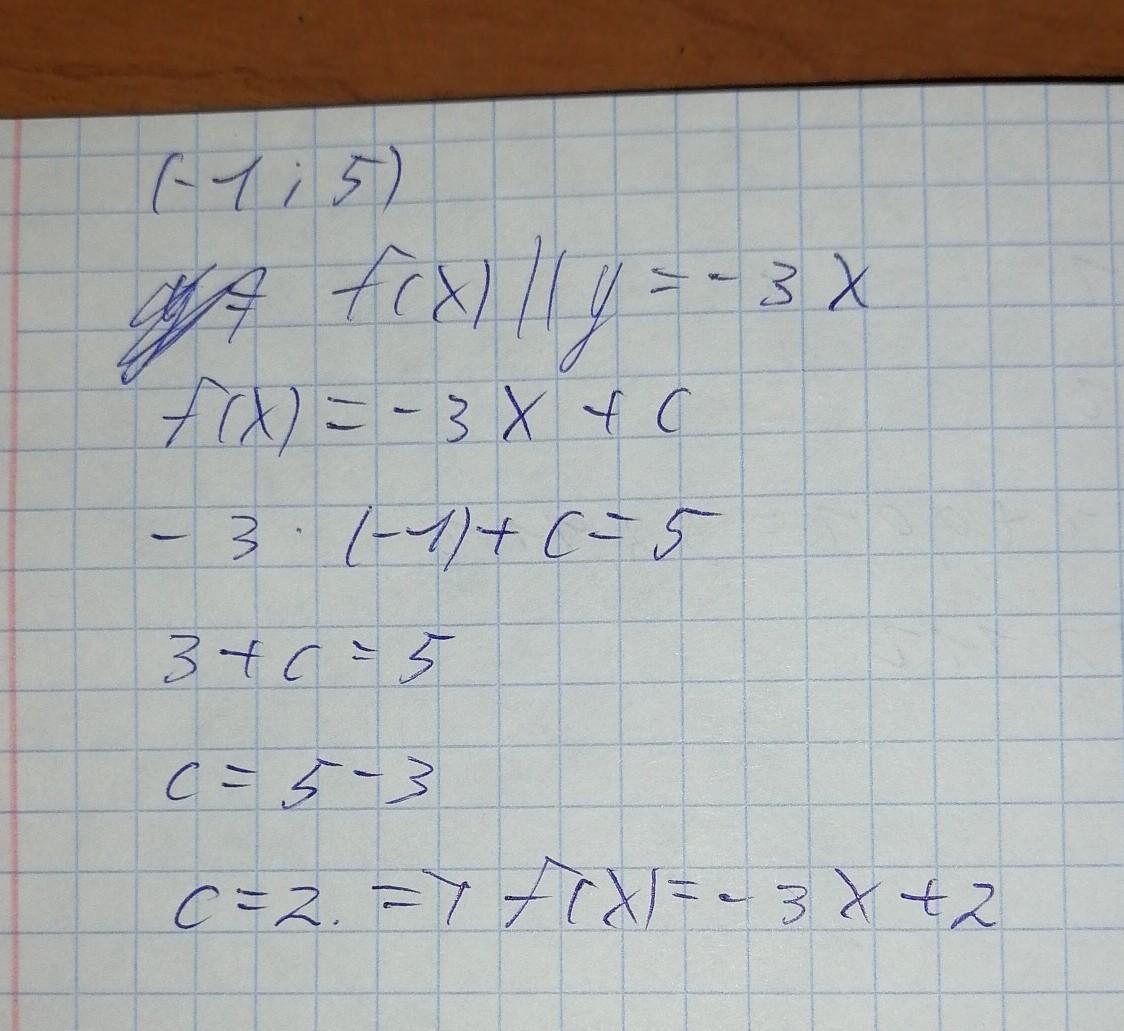 (-1; 5)
f(x) || y = -3x
f(x) = -3x + c
-3 · (-1) + c = 5
3 + c = 5
c = 5 - 3
c = 2. => f(x) = -3x + 2